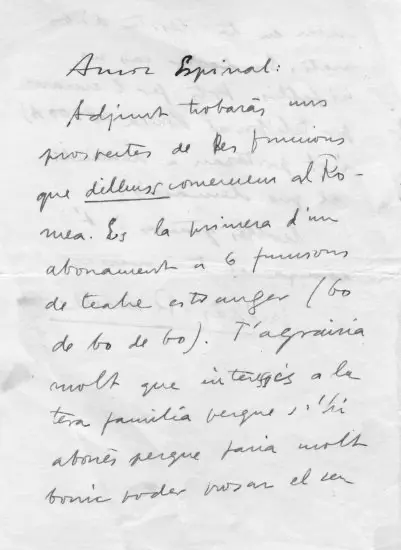 Amic Espinal:
Adjunt trobaràs uns
prospectes de les funcions
que dilluns comencem al Ro-
mea. Es la primera d'un
abonament a 6 funcions
de teatre estranger (bo
de bo de bo). T'agrairia
molt que interessés a la
teva familia perque s'hi
abonés perque faria molt
bonic poder posar el seu